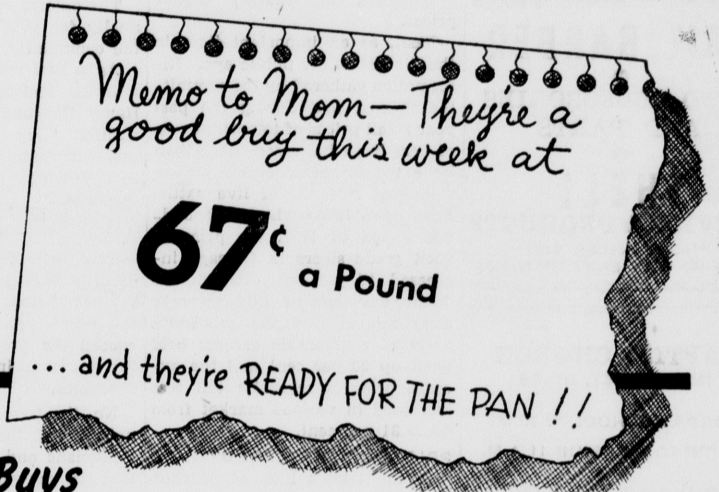 Memo to Mom—They're a
good buy this week at
67¢ a Pound
... and they're READY FOR THE PAN !!
Buys